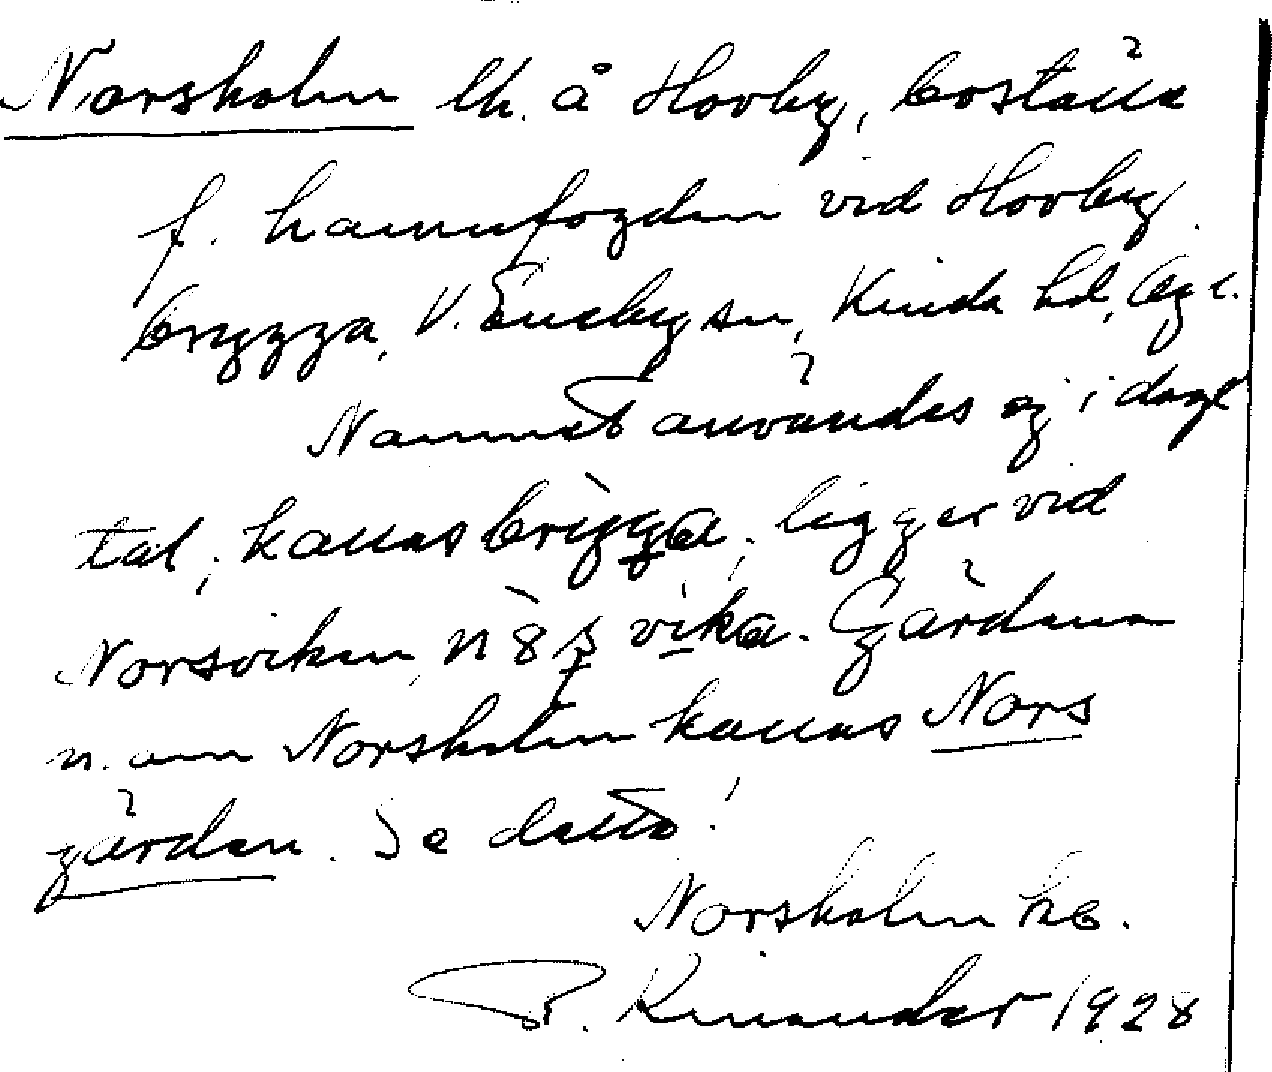 Norsholm lh. å Hovby, boställe
f. hamnfogden vid Hovby
brygga, V. Eneby sn, Kinda hd, Ög l.
Namnet användes ej i dagl
tal, kallas brigga, ligger vid
Norsviken, n8s vika. Gården
n. om Norsholm kallas Nors
gården. Se detta!
Norsholm he.
R. Kinander 1928